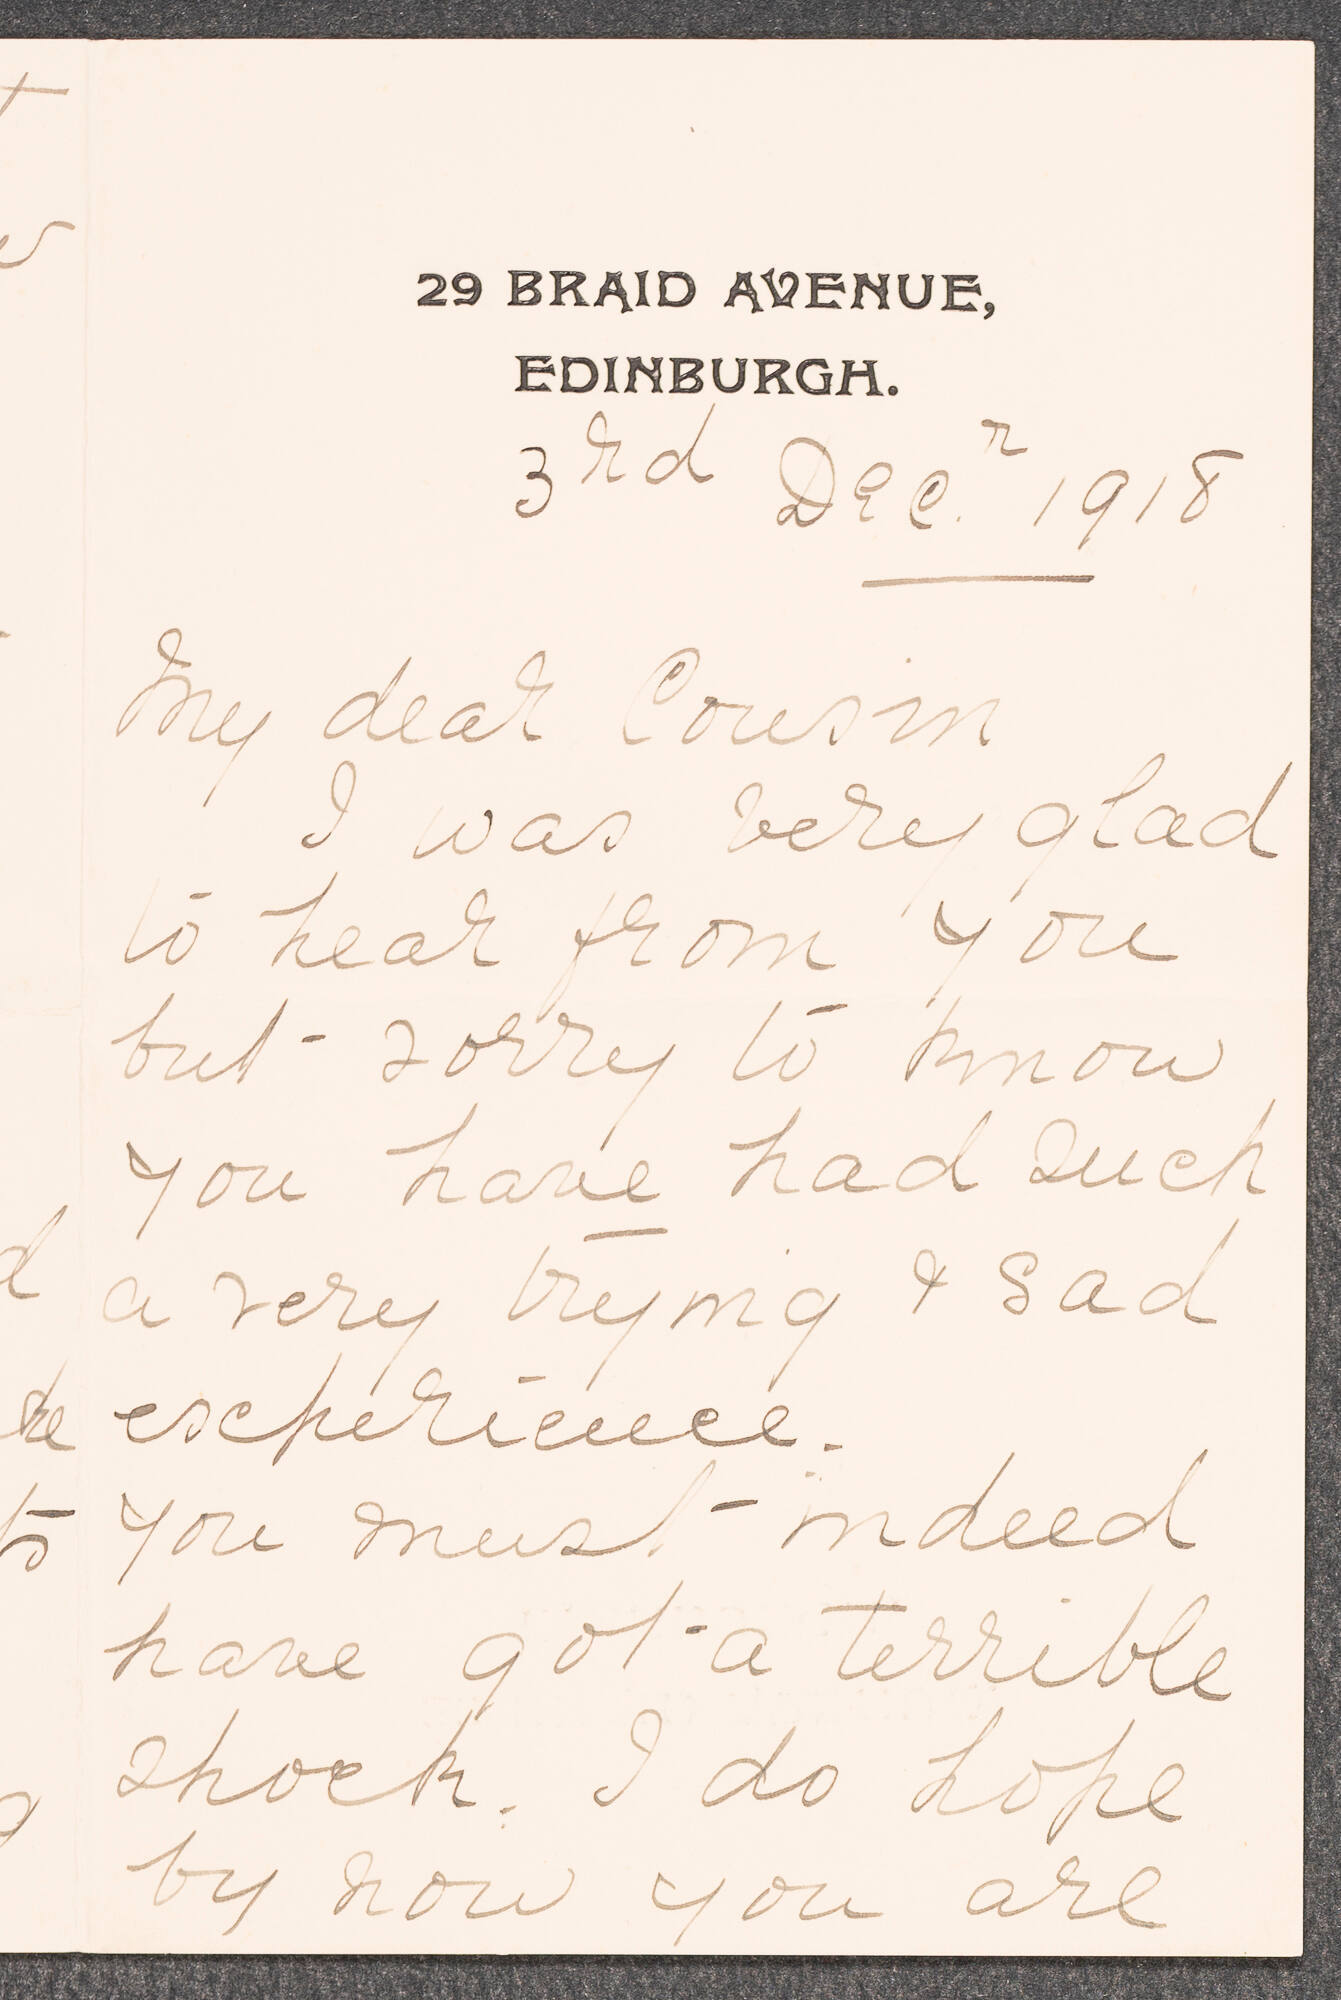 29 BRAID AVENUE,
EDINBURGH.
3rd Decr. 1918
My dear Cousin
I was very glad
to hear from you
but sorry to know
you have had such
a very trying & sad
experience.
You must indeed
have got a terrible
shock. I do hope
by now you are